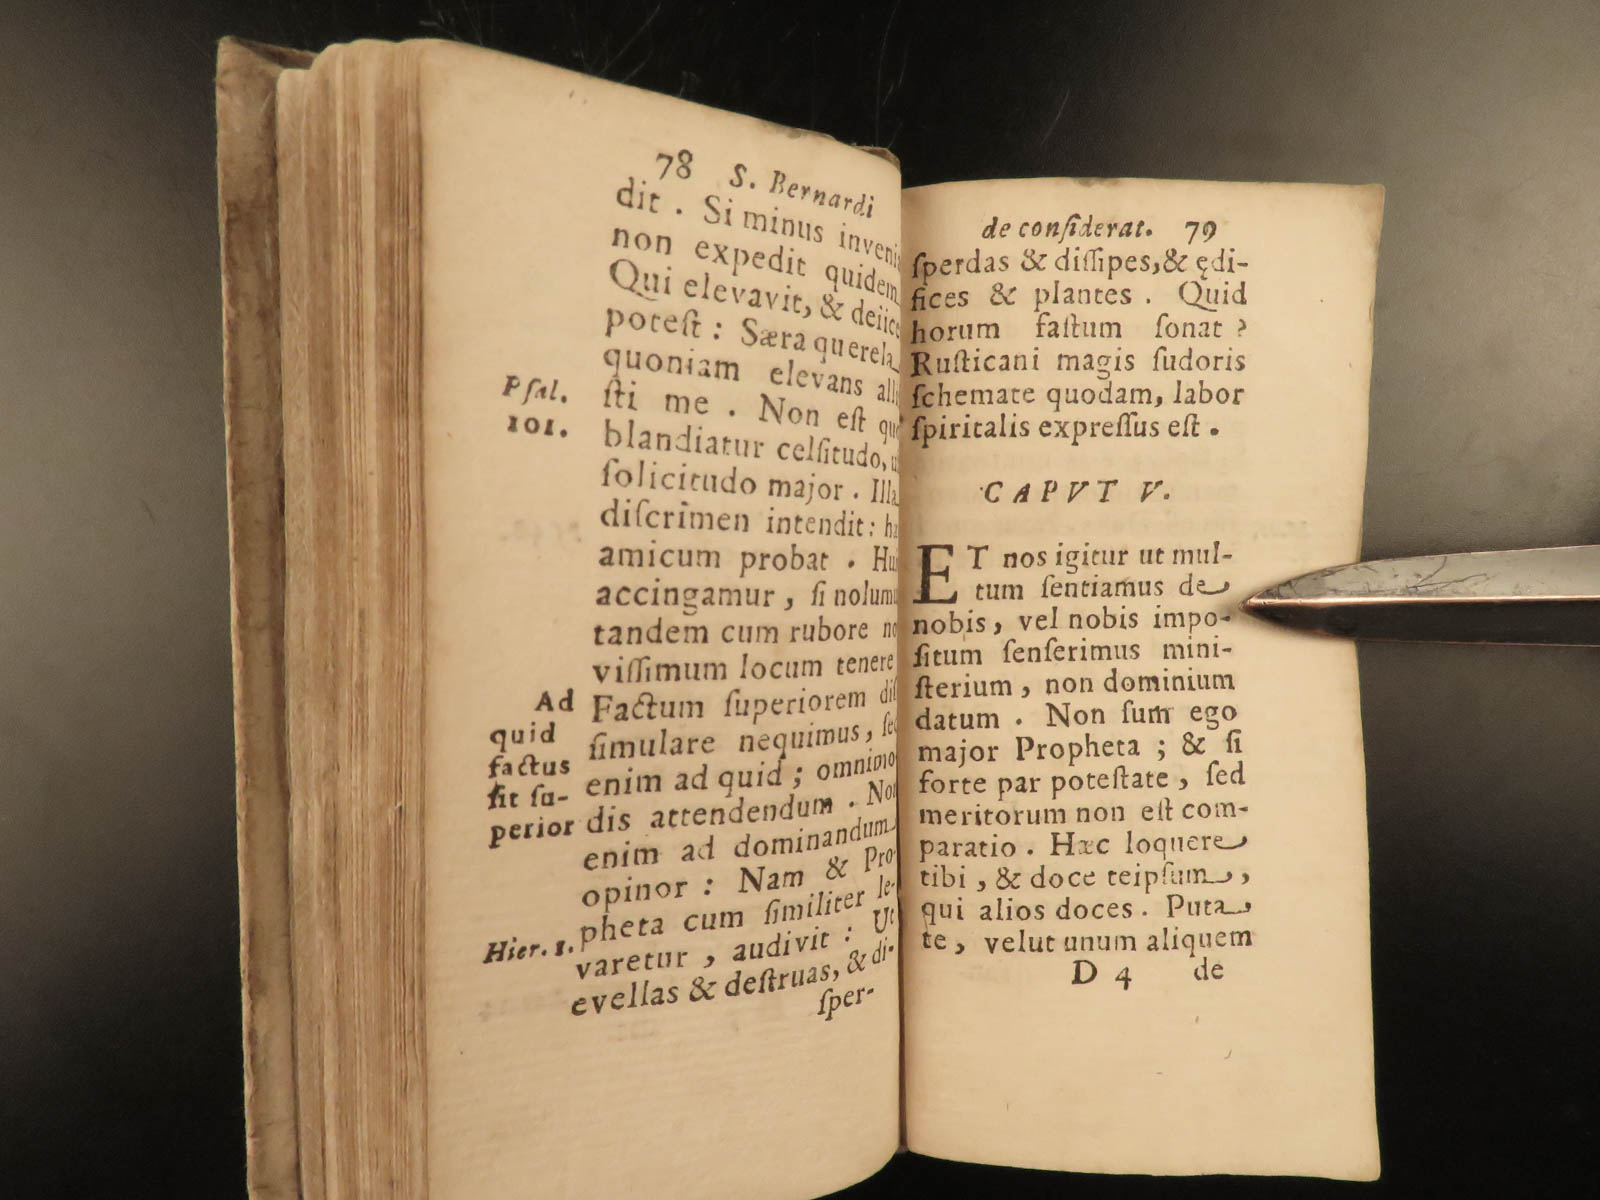 78 S. Bernardi
dit. Si minus inveni
non expedit quidem
Qui elevavit, & deiice
potest: Særa querela
quoniam elevans alli
Psal. sti me. Non est
101. blandiatur celsitudo,
solicitudo major. Illa
discrimen intendit: hæ
amicum probat. Hui
accingamur, si nolumu
tandem cum rubore no
vissimum locum tenere
Ad Factum superiorem dis
quid simulare nequimus, sed
factus enim ad quid; omnimo
sit su- dis attendendum. Non
perior enim ad dominandum
opinor: Nam & Pro-
pheta cum similiter le-
Hier. 1. varetur, audivit: Ut
evellas & destruas, & di-
sper-
de considerat. 79
sperdas & dissipes, & ędi-
fices & plantes. Quid
horum fastum sonat?
Rusticani magis sudoris
schemate quodam, labor
spiritalis expressus est.
CAPVT V.
ET nos igitur ut mul-
tum sentiamus de
nobis, vel nobis impo-
situm senserimus mini-
sterium, non dominium
datum. Non sum ego
major Propheta; & si
forte par potestate, sed
meritorum non est com-
paratio. Hæc loquere
tibi, & doce teipsum,
qui alios doces. Puta
te, velut unum aliquem
D 4 de